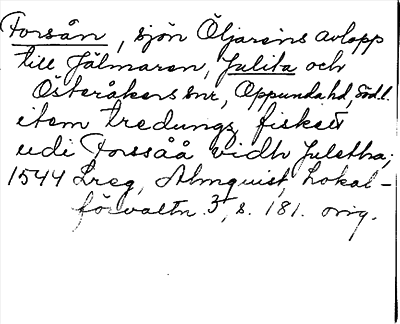 Forsån, sjön Öljarens avlopp
till Jälmaren, Julita och
Österåkers snr, Oppunda hd, Södl.
item tredungz fiskett
udi Forssåå vidh Juletha;
1544 Lreg, Almquist, Lokal-
förvaltn. 3, s. 181. orig.